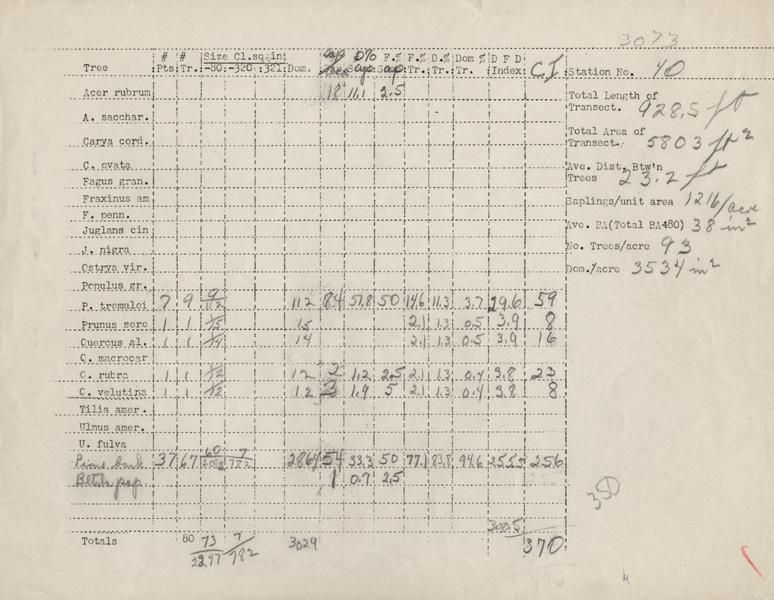 3073
# # Size Cl.sqain D% F.% F.% D.% Dom % D F D
Tree Pts. Tr. -80- -320- :321 Dom. Sap Sap Tr. Tr. Tr. Index CI Station No. 40
Acer rubrum 18 11.1 2.5
Total Length of
Transect. 928.5 ft
A. sacchar.
Total Area of
Transect. 5803 ft²
Carya cord.
C. ovata
Ave. Dist. Btw'n
Trees 23.2 ft
Fagus gran.
Fraxinus am
Saplings/unit area 1216/acre
F. penn.
Juglans cin
Ave. BA(Total BA÷80) 38 in²
J. nigra
No. Trees/acre 93
Ostrya vir.
Dom./acre 3534 in²
Populus gr.
P. tremuloi 7 9 9/112 112 84 51.8 50 14.6 11.3 3.7 29.6 59
Prunus sero 1 1 1/15 15 2.1 1.3 0.5 3.9 8
Quercus al. 1 1 1/14 14 2.1 1.3 0.5 3.9 16
Q. macrocar
Q. rubra 1 1 1/12 12 2 1.2 2.5 2.1 1.3 0.4 3.8 23
Q. velutina 1 1 1/12 12 3 1.9 5 2.1 1.3 0.4 3.8 8
Tilia amer.
Ulmus amer.
U. fulva
Pinus bank 37 67 60/2082 7/782 2864 54 33.3 50 77.1 83.8 94.6 255.5 256
Betula pap. 1 0.7 2.5
350
300.5
Totals 80 73/2247 7/782 3029 370